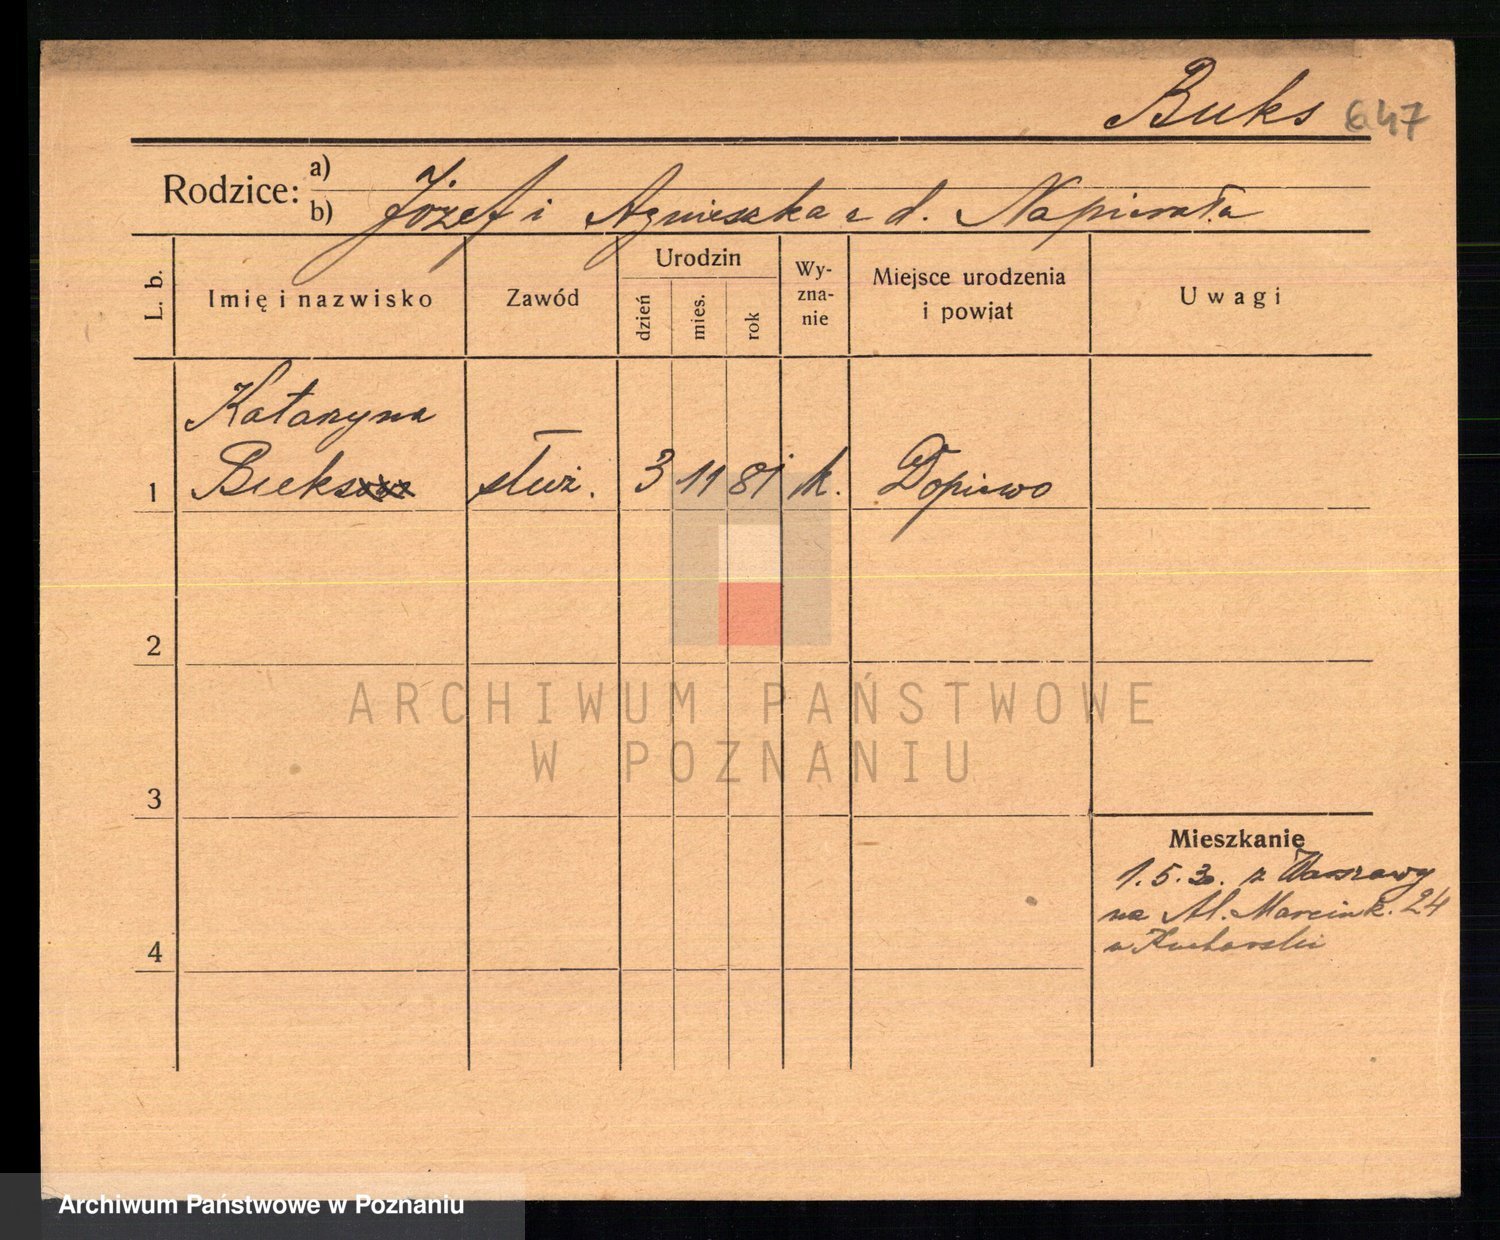 Buks 647
Rodzice: a)
b) Józef i Agnieszka z d. Napierała
L. b.
Imię i nazwisko
Zawód
Urodzin
dzień
mies.
rok
Wy-
zna-
nie
Miejsce urodzenia
i powiat
Uwagi
Katarzyna
1 Buks służ. 3 11 81 k. Dopiewo
2
ARCHIWUM PAŃSTWOWE
W POZNANIU
3
Mieszkanie
1.5.30. z Warszawy
na Al. Marcink. 24
u Kucharski
4
Archiwum Państwowe w Poznaniu